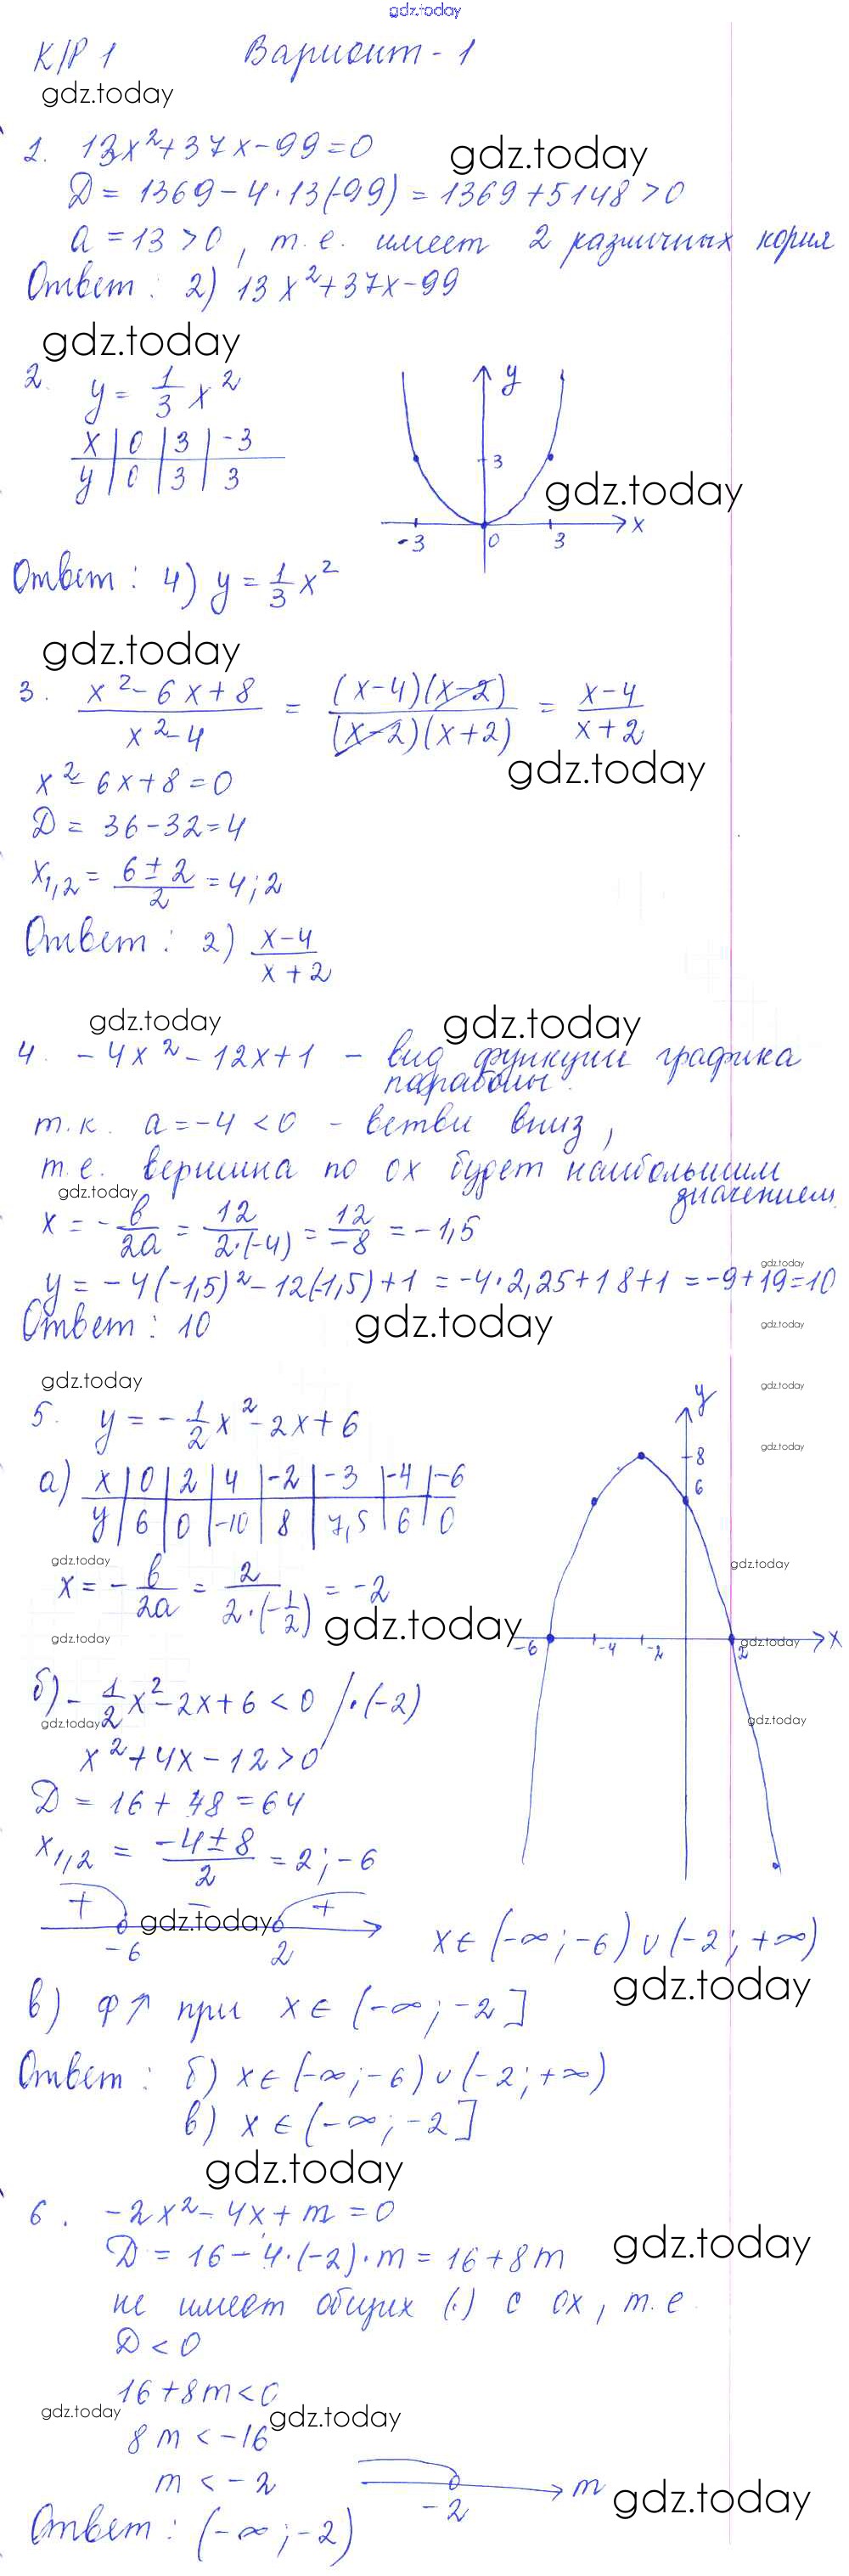 gdz.today
К/Р 1 Вариант - 1
gdz.today
1. 13x²+37x-99=0
gdz.today
Д = 1369-4·13(-99) = 1369+5148>0
a = 13 >0, т.е. имеет 2 различных корня
Ответ: 2) 13x²+37x-99
gdz.today
2. y = 1/3 x²
x | 0 | 3 | -3
y | 0 | 3 | 3
y
3
gdz.today
-3 0 3 x
Ответ: 4) y = 1/3 x²
gdz.today
3. (x²-6x+8)/(x²-4) = ((x-4)(x-2))/((x-2)(x+2)) = (x-4)/(x+2)
gdz.today
x²-6x+8=0
Д = 36-32=4
x1,2 = (6±2)/2 = 4;2
Ответ: 2) (x-4)/(x+2)
gdz.today gdz.today
4. -4x²-12x+1 - вид функции графика
параболы.
т.к. a=-4<0 - ветви вниз,
т.е. вершина по ox будет наибольшим
значением
gdz.today
x = -в/2a = 12/(2·(-4)) = 12/-8 = -1,5
gdz.today
y = -4(-1,5)²-12(-1,5)+1 = -4·2,25+18+1 = -9+19=10
Ответ: 10
gdz.today gdz.today
gdz.today gdz.today
5. y = -1/2 x²-2x+6
y
gdz.today
8
6
а) x | 0 | 2 | 4 | -2 | -3 | -4 | -6
y | 6 | 0 | -10 | 8 | 7,5 | 6 | 0
gdz.today gdz.today
x = -в/2a = 2/(2·(-1/2)) = -2
gdz.today
gdz.today gdz.today
-6 -4 -2 2 x
б) -1/2 x²-2x+6<0 /·(-2)
gdz.today gdz.today
x²+4x-12>0
Д = 16+48=64
x1,2 = (-4±8)/2 = 2;-6
+ - +
gdz.today
-6 2
x∈(-∞;-6)∪(-2;+∞)
gdz.today
в) ф↑ при x∈(-∞;-2]
Ответ: б) x∈(-∞;-6)∪(-2;+∞)
в) x∈(-∞;-2]
gdz.today
6. -2x²-4x+m=0
gdz.today
Д = 16-4·(-2)·m = 16+8m
не имеет общих (·) с ox, т.е.
Д<0
16+8m<0
gdz.today gdz.today
8m<-16
m<-2
-2 m
gdz.today
Ответ: (-∞;-2)